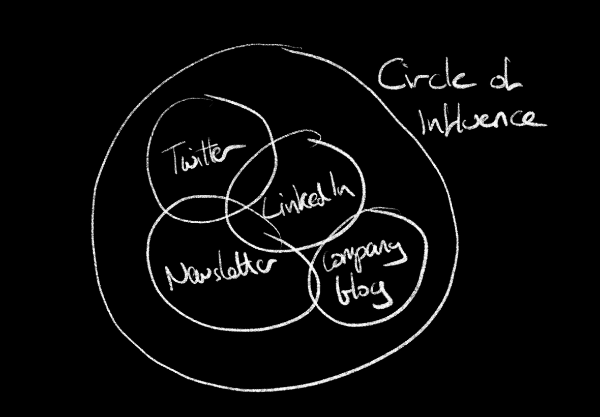 Circle of
Influence
Twitter
LinkedIn
Newsletter
Company
blog